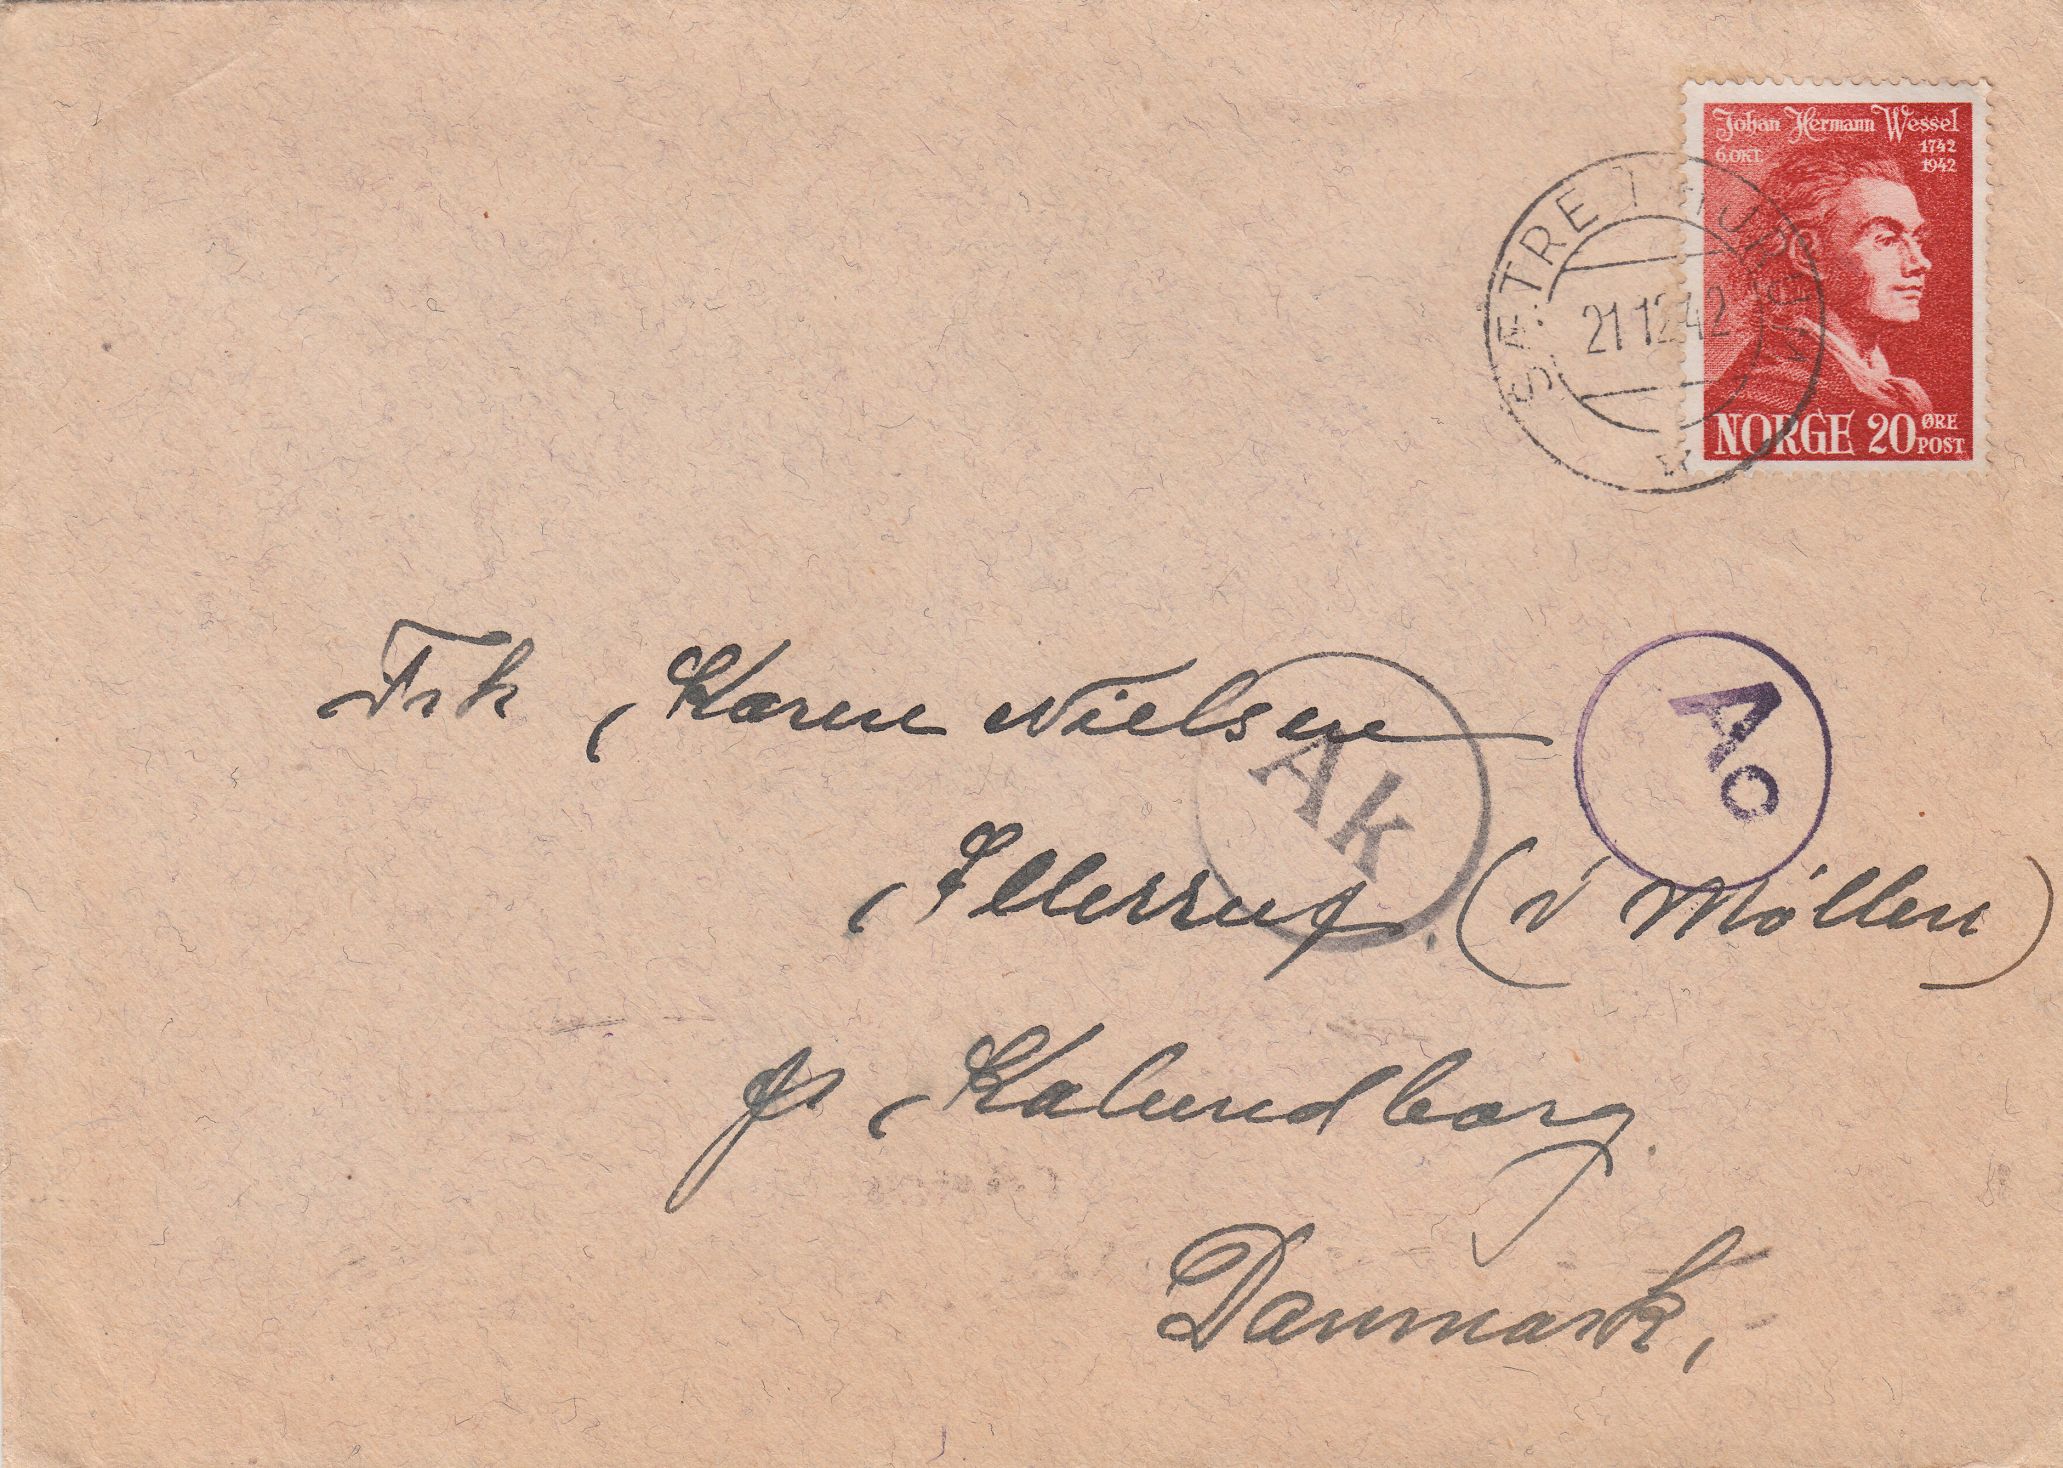 Johan Hermann Wessel
6.OKT. 1742
1942
SÆTRE I HURUM
21 12 42
NORGE 20 ØRE
POST
Frk Karen Nielsen
Ak
Ac
Illerup (v Møllen)
pr Kalundborg.
Danmark,